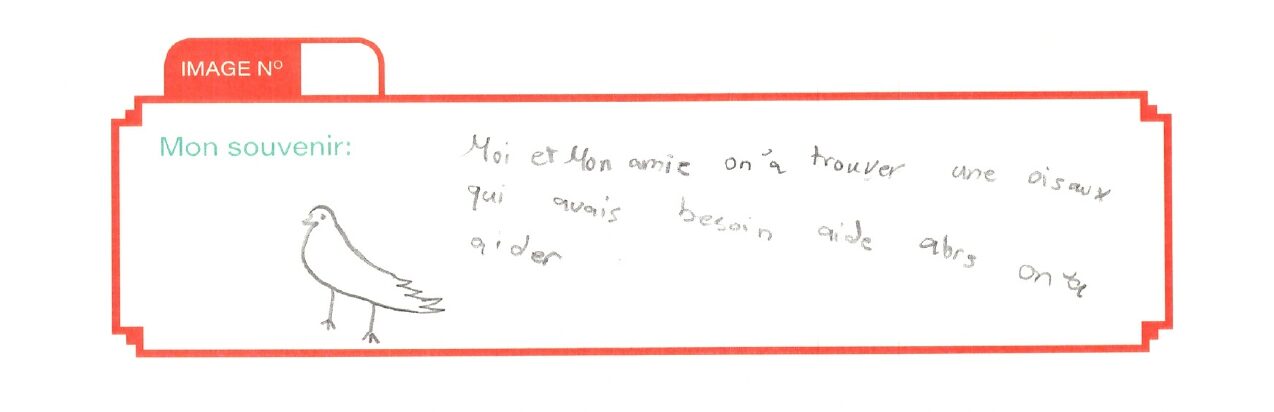 IMAGE Nº
Mon souvenir:
Moi et Mon amie on'a trouver une oisaux
qui avais besoin aide alors on'a
aider